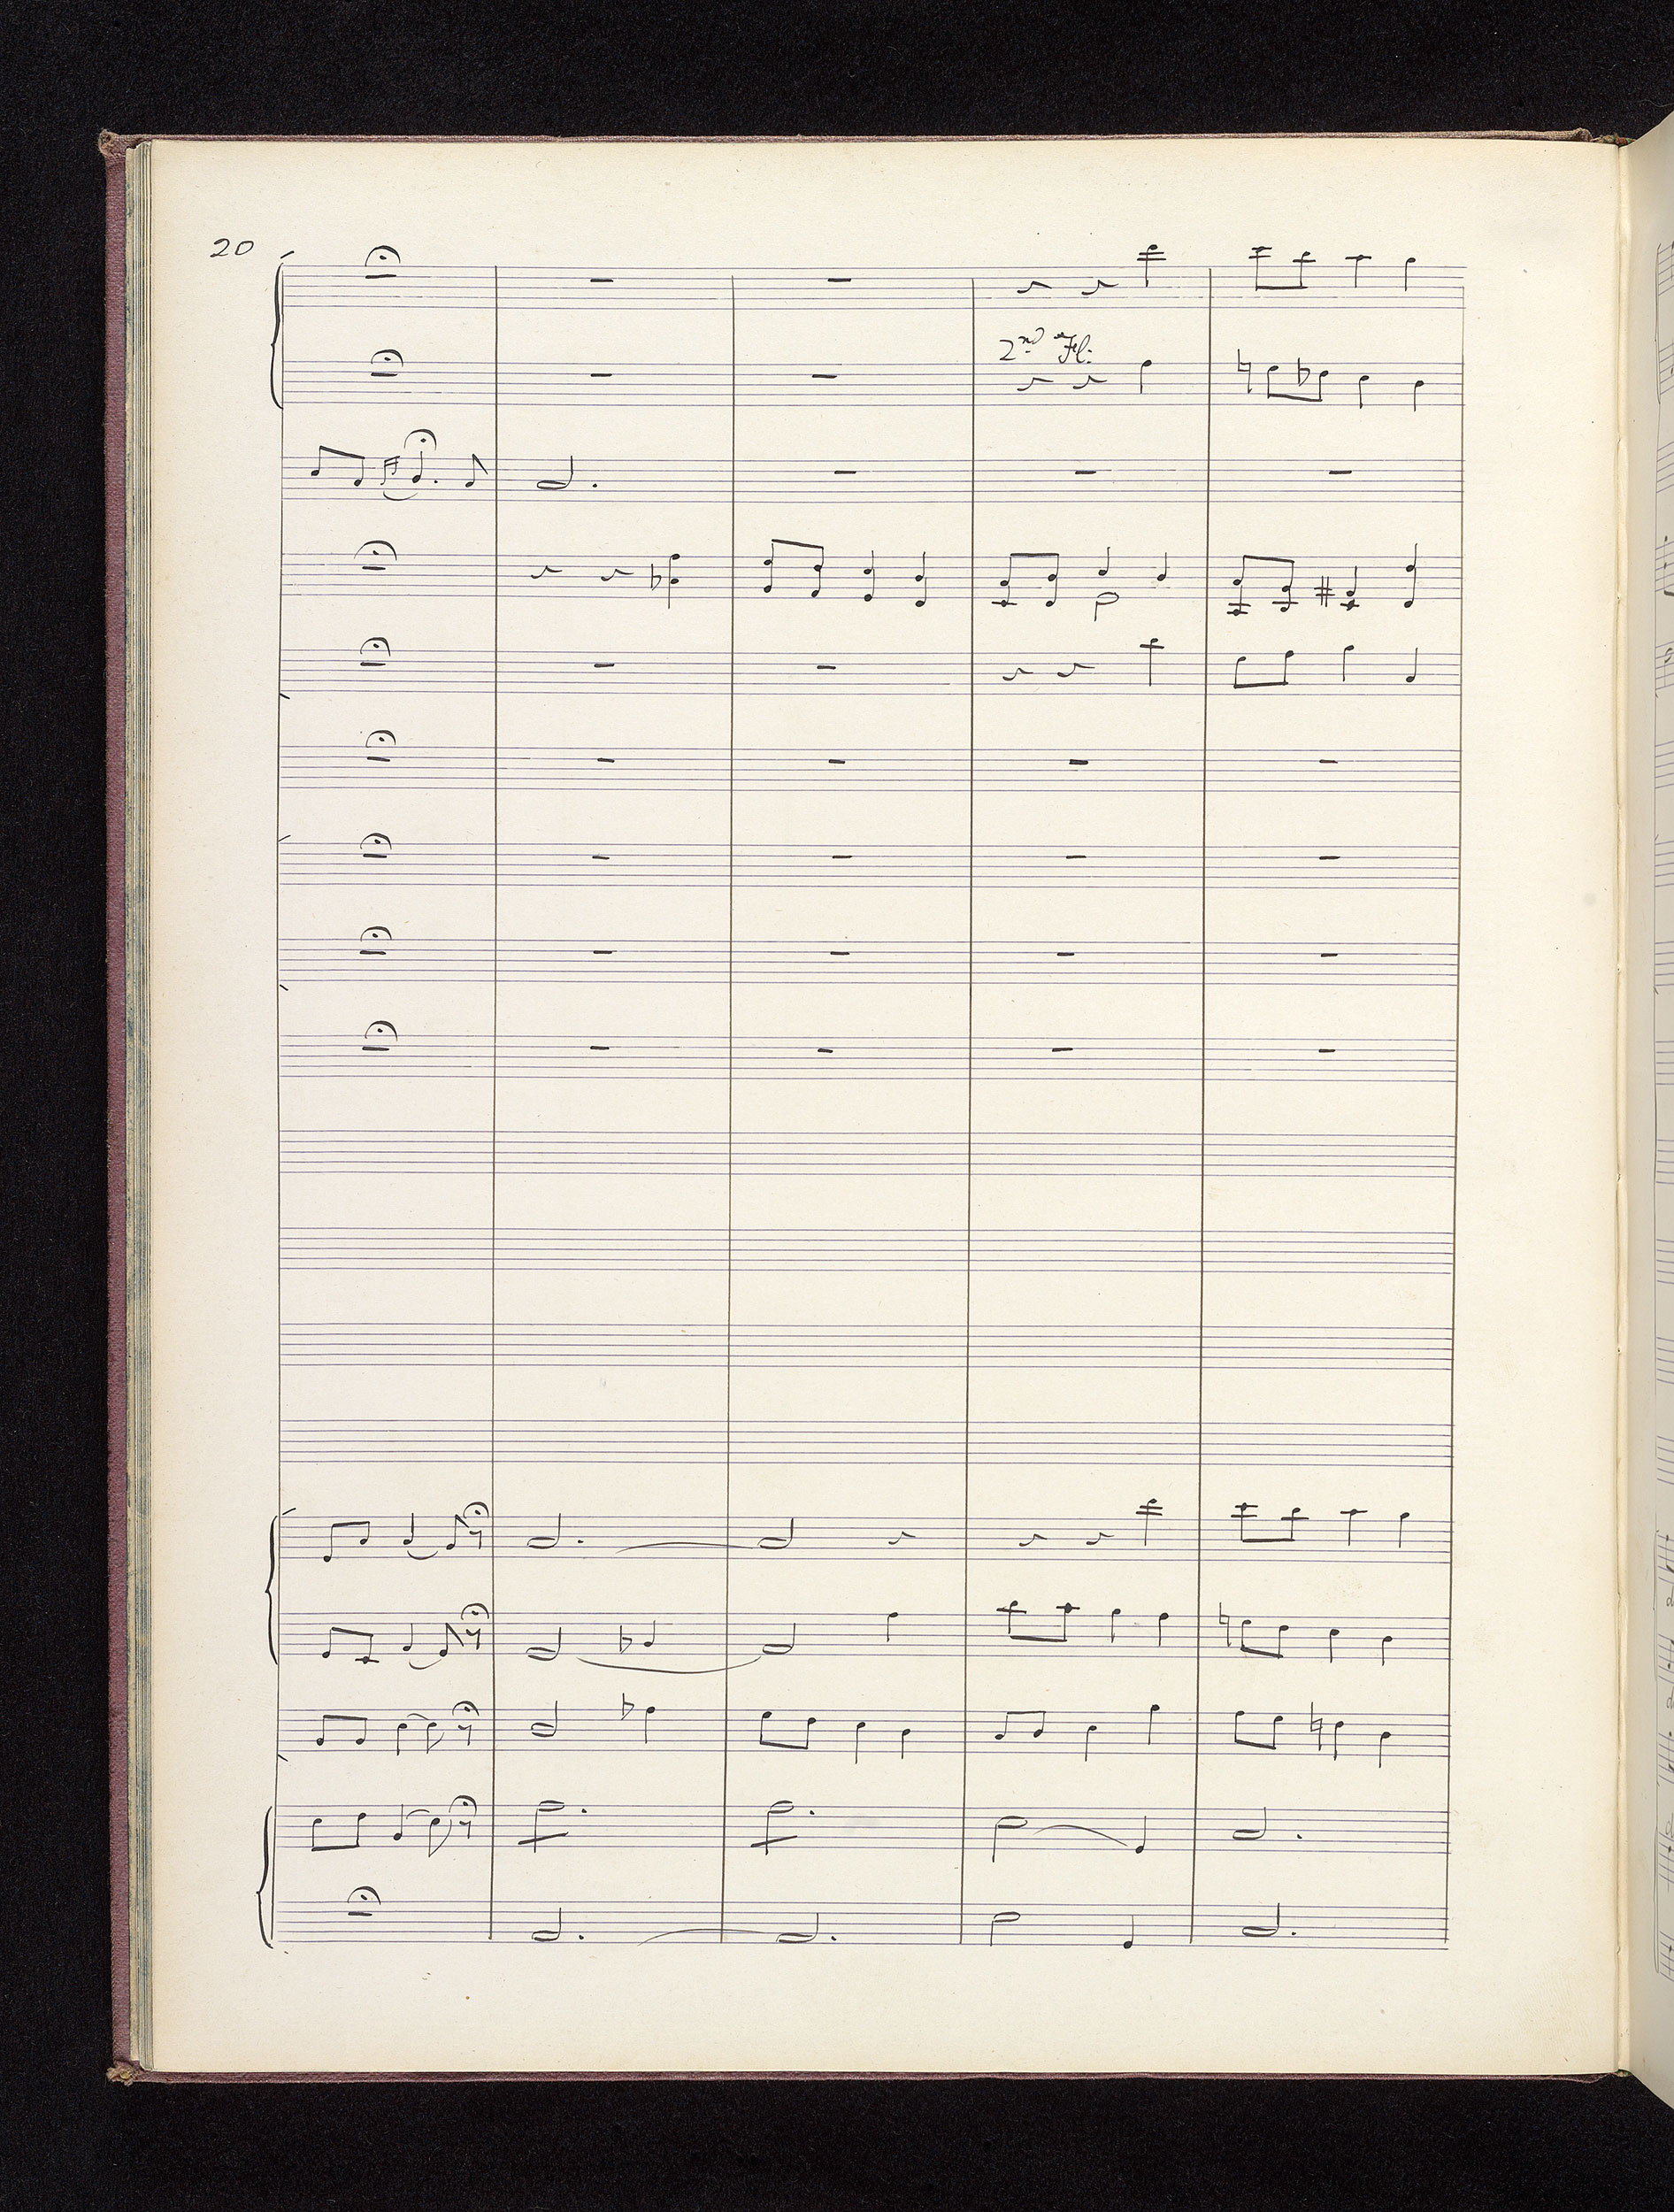 20
2nd Fl: